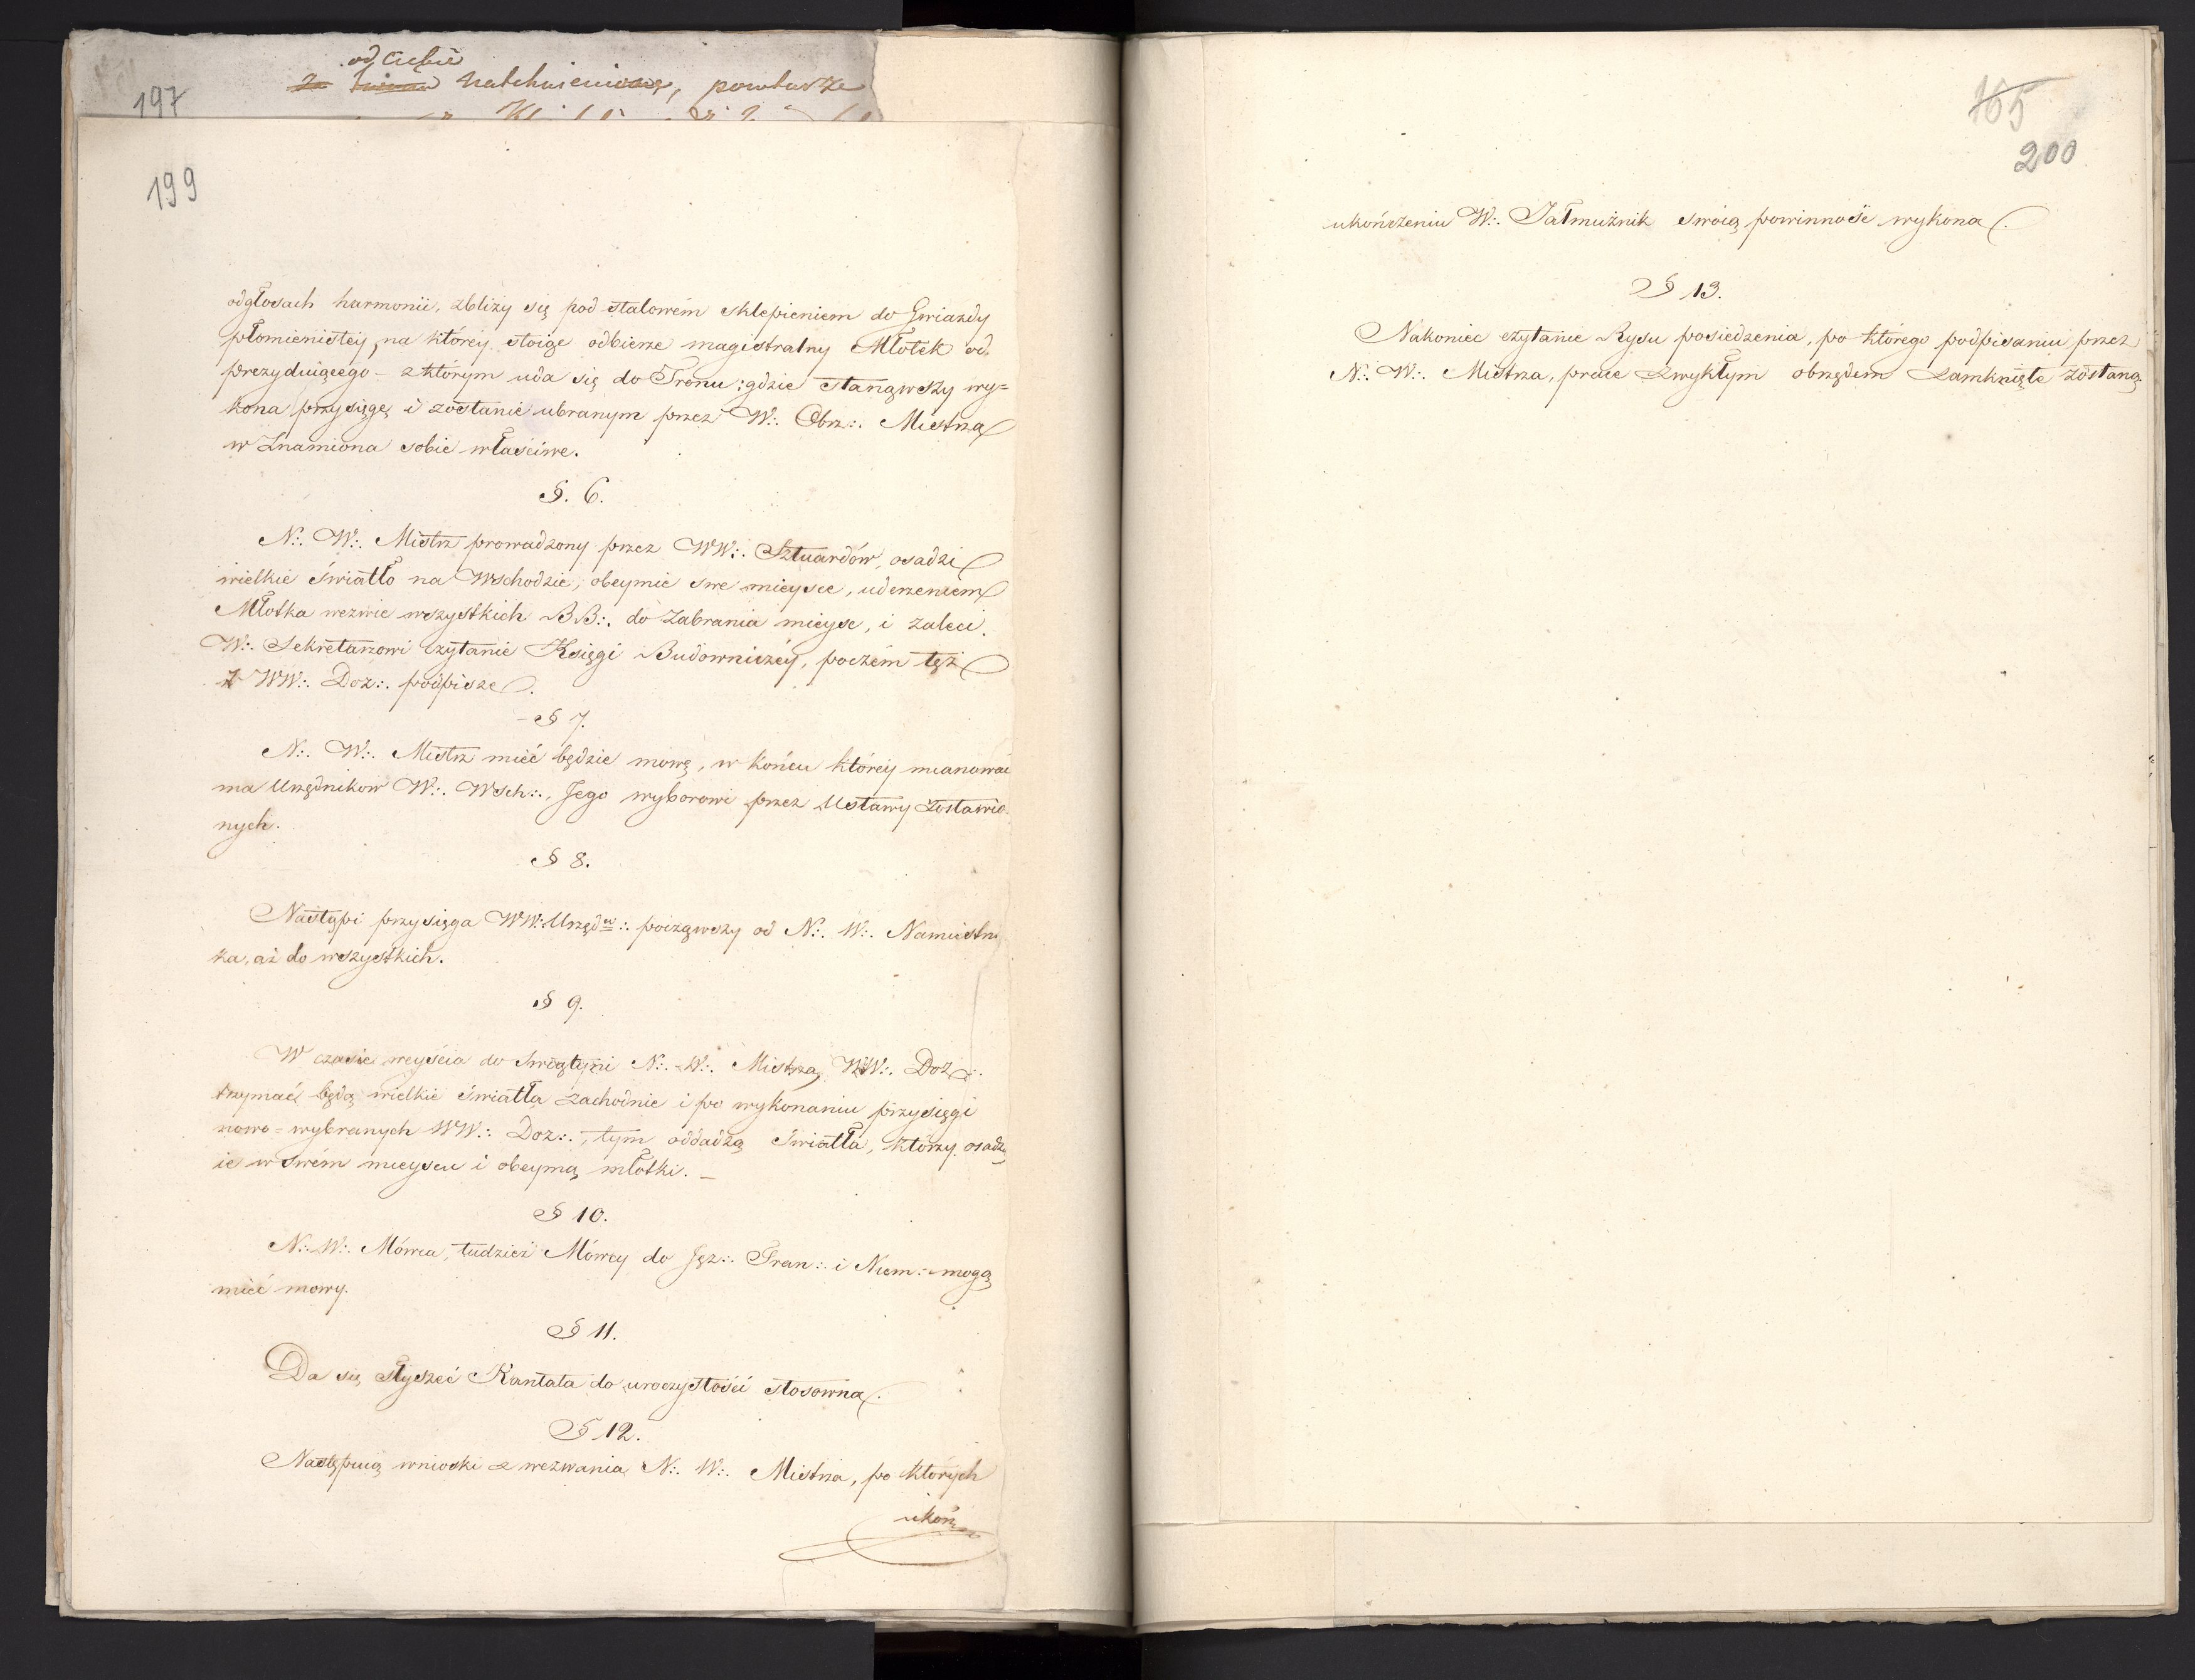 od Ciebie
197
natchnieniu, powtarza
199
odgłosach harmonii, zbliży się pod stalowém sklepieniem do Gwiazdy
płomienistéy, na któréy stoiąc odbierze magistralny Młotek od
Prezyduiącego – z którym uda się do Tronu; gdzie stanąwszy wy=
kona przysięgę i zostanie ubranym przez W∴ Obrz∴ Mistrza
w Znamiona sobie właściwe.
§. 6.
N∴ W∴ Mistrz prowadzony przez WW∴ Sztuardów, osadzi
wielkie światło na Wschodzie, obeymie swe mieysce, uderzeniem
Młotka wezwie wszystkich BB∴ do zabrania mieysc, i zaleci
W∴ Sekretarzowi czytanie Księgi Budowniczéy, poczém tęż
z WW∴ Doz∴ podpisze.
§ 7.
N∴ W∴ Mistrz mieć będzie mowę, w końcu któréy mianować
ma Urzędnikow W∴ Wsch∴, Jego wyborowi przez Ustawy zostawio-
nych.
§ 8.
Nastąpi przysięga WW∴ Urzęd∴ począwszy od N∴ W∴ Namiestni
ka, aż do wszystkich.
§ 9.
W czasie weyścia do Swiątyni N∴ W∴ Mistrza, WW∴ Doz∴
trzymać będą wielkie światła zachodnie i po wykonaniu przysięgi
nowo=wybranych WW∴ Doz∴, tym oddadzą światła, którzy osadzą
ie w swém mieyscu i obeymą młotki. –
§ 10.
N∴ W∴ Mówca, tudzież Mówcy do Jęz∴ Fran∴ i Niem∴ mogą
mieć mowy.
§ 11.
Da się słyszeć Kantata do uroczystości stosowna.
§ 12.
Następuią wnioski z wezwania N∴ W∴ Mistrza, po których
ukoń
165
200
ukończeniu W∴ Jałmużnik swoią powinność wykona.
§ 13.
Nakoniec czytanie Rysu posiedzenia, po którego podpisaniu przez
N∴ W∴ Mistrza, prace zwykłym obrzędem zamknięte zostaną.